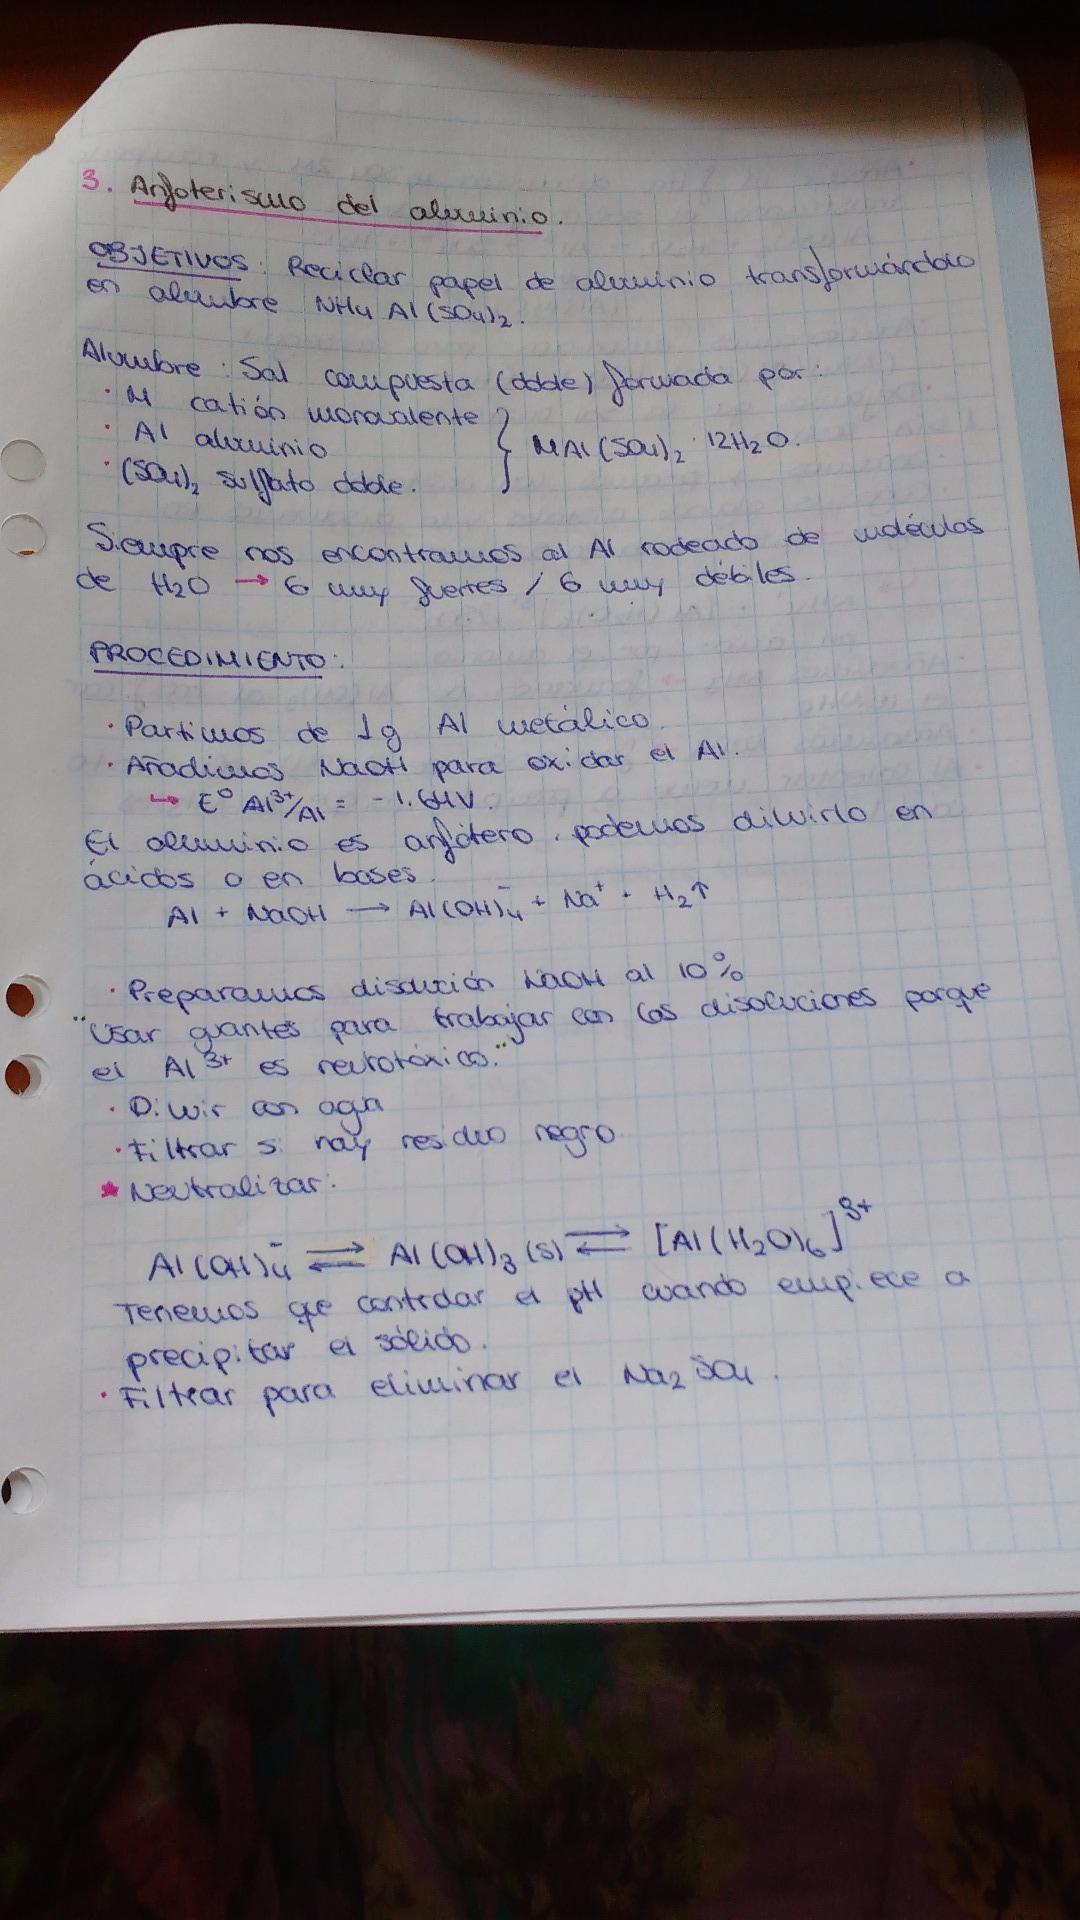 3. Anfoterismo del aluminio.
OBJETIVOS: Reciclar papel de aluminio transformándolo
en alumbre NH4 Al(SO4)2.
Alumbre: Sal compuesta (doble) formada por:
· M catión monovalente
· Al aluminio
· (SO4)2 sulfato doble.
} MAl(SO4)2 · 12H2O.
Siempre nos encontramos al Al rodeado de moléculas
de H2O → 6 muy fuertes / 6 muy débiles.
PROCEDIMIENTO:
· Partimos de 1g Al metálico.
· Añadimos NaOH para oxidar el Al.
↳ E° Al³⁺/Al = -1.64V.
El aluminio es anfótero, podemos diluirlo en
ácidos o en bases.
Al + NaOH → Al(OH)4⁻ + Na⁺ + H2↑
· Preparamos disolución NaOH al 10%
"Usar guantes para trabajar con las disoluciones porque
el Al³⁺ es neurotóxico."
· Diluir con agua
· Filtrar si hay residuo negro
* Neutralizar:
Al(OH)4⁻ ⇌ Al(OH)3 (s) ⇌ [Al(H2O)6]³⁺
Tenemos que controlar el pH cuando empiece a
precipitar el sólido.
· Filtrar para eliminar el Na2SO4.